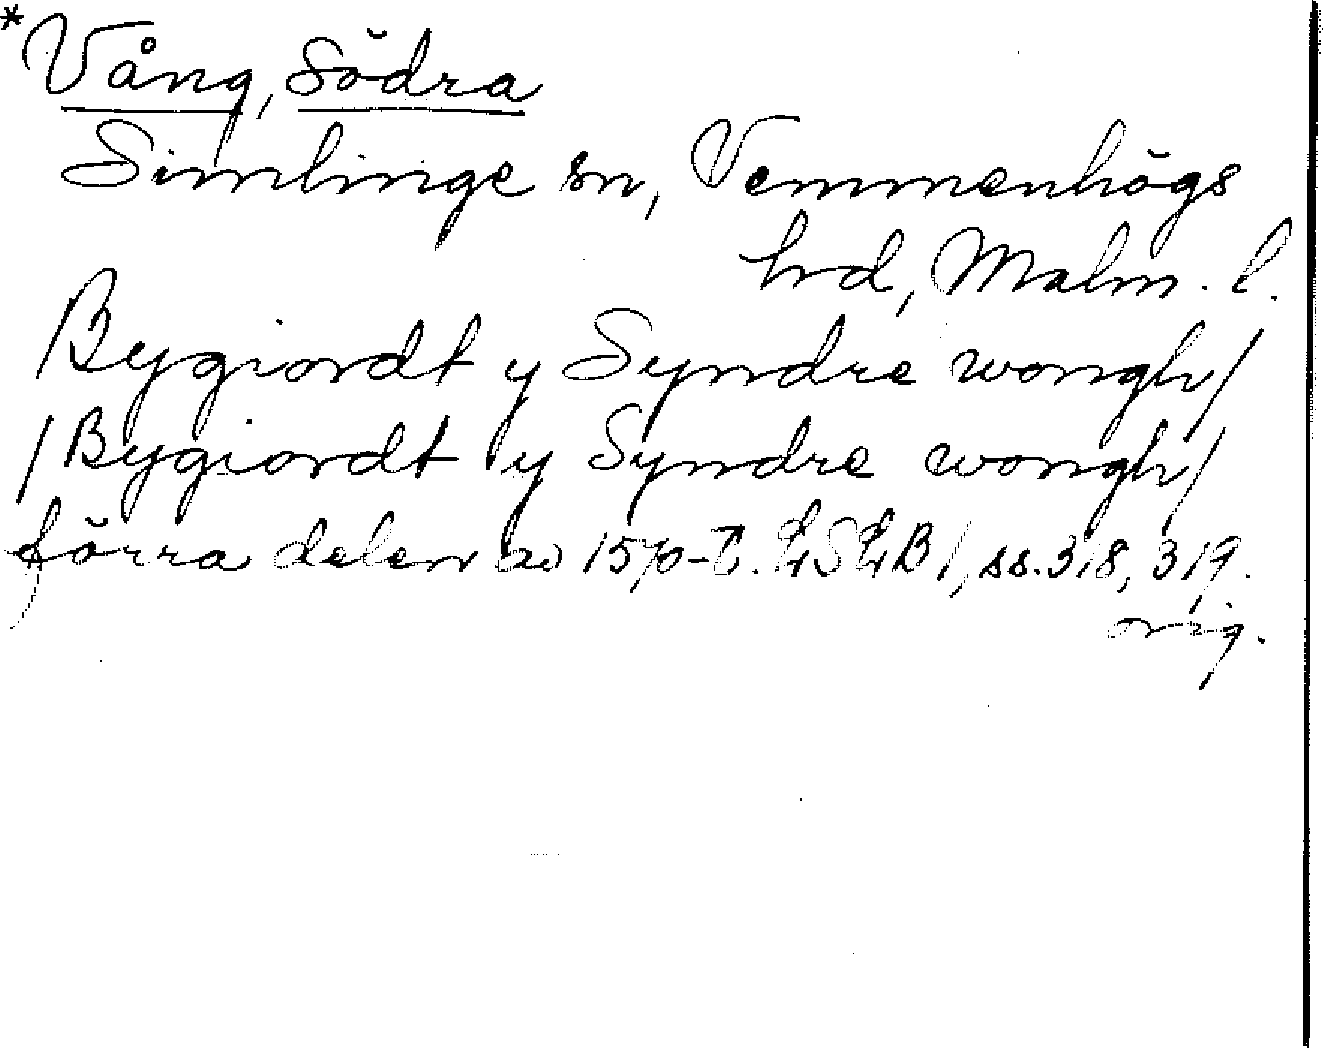 *Vång, Södra
Simlinge sn, Vemmenhögs
hrd, Malm. l.
Bygiordt y Syndre wongh/
/Bygiordt y Syndre wongh/
förra delen av 1570-t. LSLB 1, ss. 318, 319.
orig.